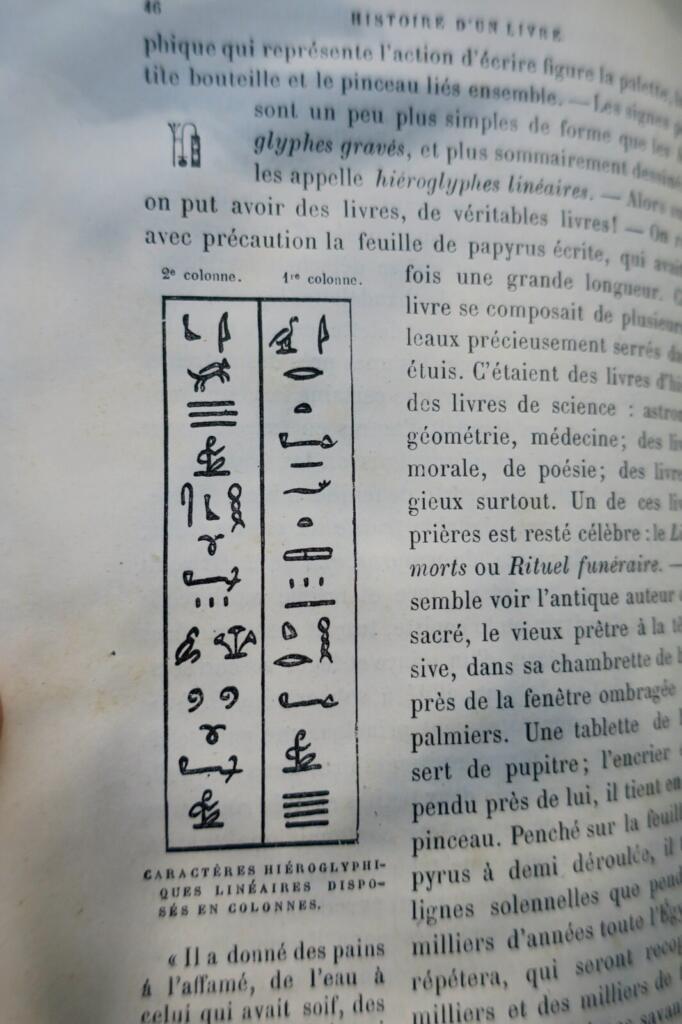 46
HISTOIRE D'UN LIVRE
phique qui représente l'action d'écrire figure la palette,
tite bouteille et le pinceau liés ensemble. — Les signes
sont un peu plus simples de forme que les
glyphes gravés, et plus sommairement
les appelle hiéroglyphes linéaires. — Alors
on put avoir des livres, de véritables livres! — On
avec précaution la feuille de papyrus écrite, qui
2e colonne. 1re colonne.
CARACTÈRES HIÉROGLYPHI-
QUES LINÉAIRES DISPO-
SÉS EN COLONNES.
« Il a donné des pains
à l'affamé, de l'eau à
celui qui avait soif, des
fois une grande longueur.
livre se composait de
leaux précieusement serrés
étuis. C'étaient des livres
des livres de science :
géométrie, médecine; des
morale, de poésie; des
gieux surtout. Un de ces
prières est resté célèbre : le
morts ou Rituel funéraire. —
semble voir l'antique auteur
sacré, le vieux prêtre à la
sive, dans sa chambrette de
près de la fenêtre ombragée
palmiers. Une tablette de
sert de pupitre; l'encrier
pendu près de lui, il tient
pinceau. Penché sur la
pyrus à demi déroulée, il
lignes solennelles que
milliers d'années toute
répétera, qui seront
milliers et des milliers de